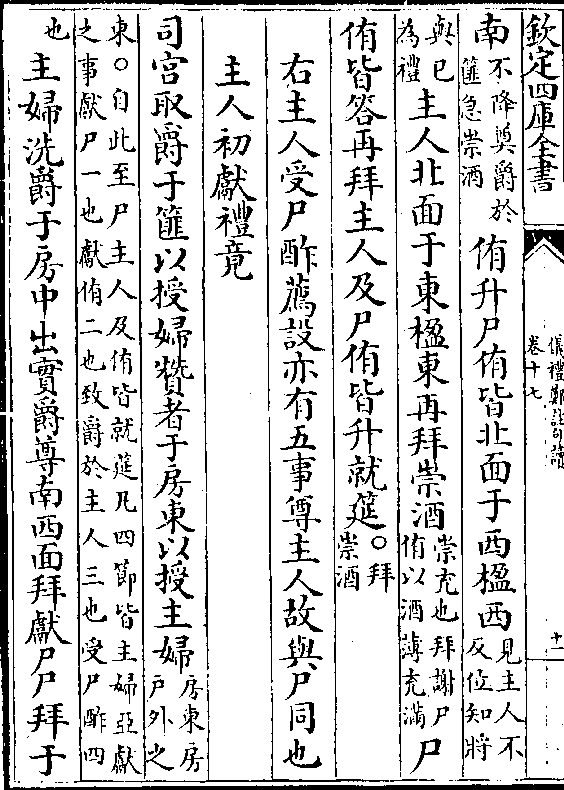 欽定四庫全書
儀禮鄭註句讀
卷十七
十一
南不降奠爵於
篚急崇酒侑升尸侑皆北面于西楹西見主人不
反位知將
與已
為禮主人北面于東楹東再拜崇酒崇充也拜謝尸
侑以酒薄充滿尸
侑皆答再拜主人及尸侑皆升就筵○拜
崇酒
右主人受尸酢薦設亦有五事尊主人故與尸同也
主人初獻禮竟
司宮取爵于篚以授婦贊者于房東以授主婦房東房
戶外之
東○自此至尸主人及侑皆就筵凡四節皆主婦亞獻
之事獻尸一也獻侑二也致爵於主人三也受尸酢四
也主婦洗爵于房中出實爵尊南西面拜獻尸尸拜于